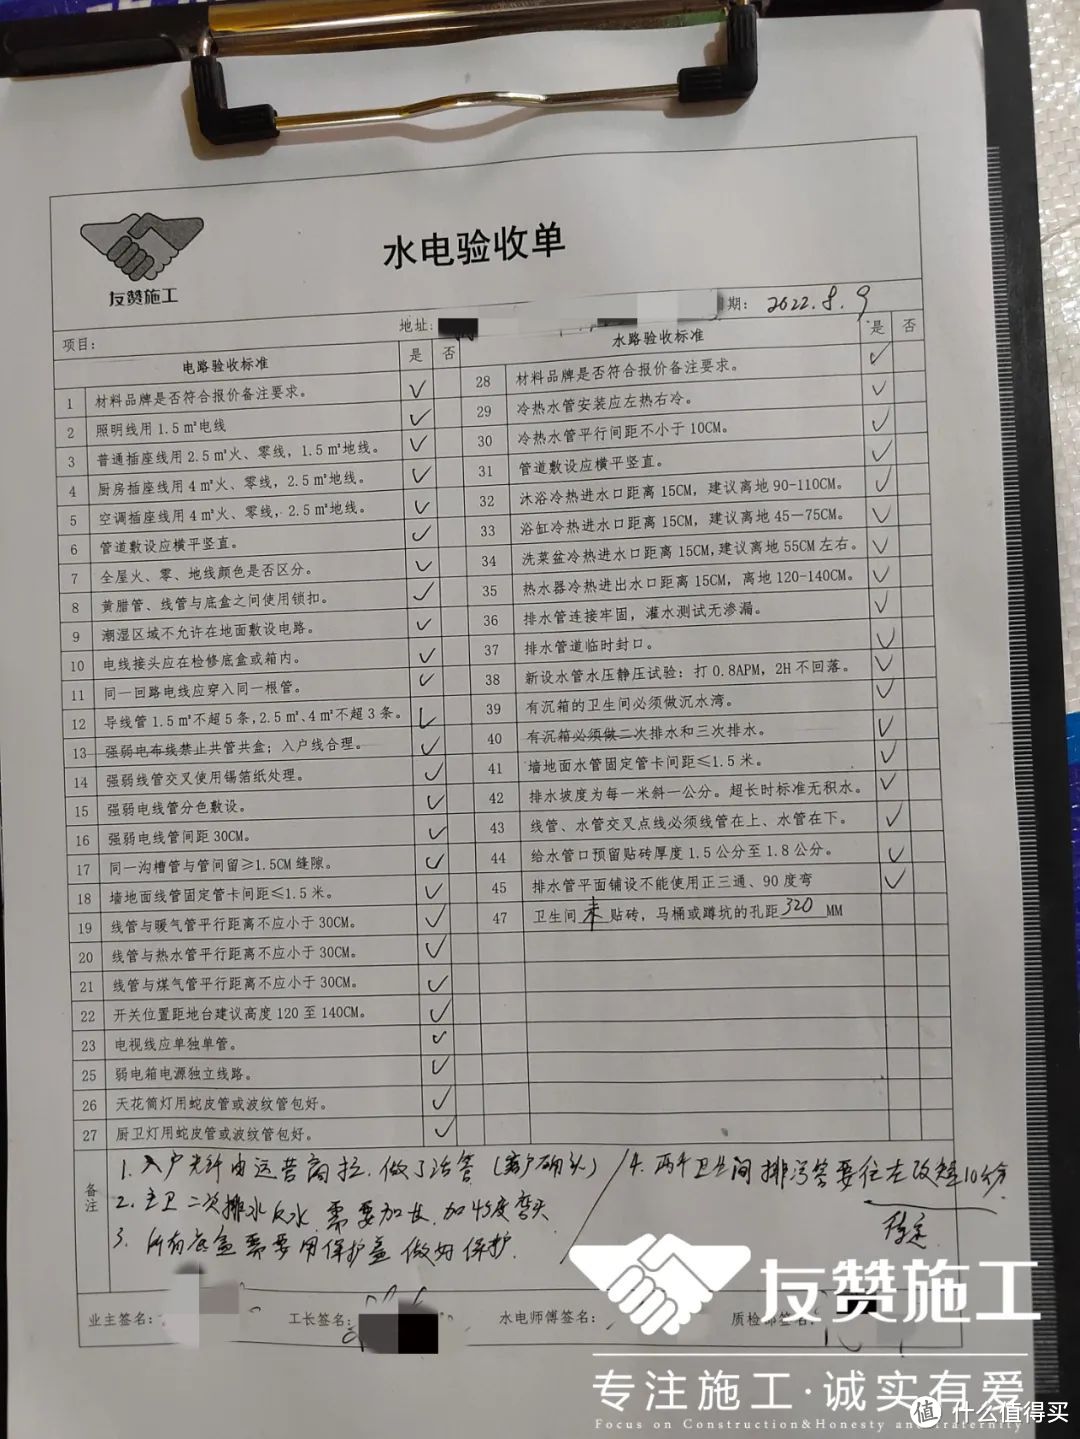 友赞施工
水电验收单
项目:
地址:
期: 2022.8.9
电路验收标准 是 否
1 材料品牌是否符合报价备注要求。 ✓
2 照明线用1.5㎡电线 ✓
3 普通插座线用2.5㎡火、零线,1.5㎡地线。 ✓
4 厨房插座线用4㎡火、零线,2.5㎡地线。 ✓
5 空调插座线用4㎡火、零线,2.5㎡地线。 ✓
6 管道敷设应横平竖直。 ✓
7 全屋火、零、地线颜色是否区分。 ✓
8 黄腊管、线管与底盒之间使用锁扣。 ✓
9 潮湿区域不允许在地面敷设电路。 ✓
10 电线接头应在检修底盒或箱内。 ✓
11 同一回路电线应穿入同一根管。 ✓
12 导线管1.5㎡不超5条,2.5㎡、4㎡不超3条。 ✓
13 强弱电布线禁止共管共盒;入户线合理。 ✓
14 强弱线管交叉使用锡箔纸处理。 ✓
15 强弱电线管分色敷设。 ✓
16 强弱电线管间距30CM。 ✓
17 同一沟槽管与管间留≥1.5CM缝隙。 ✓
18 墙地面线管固定管卡间距≤1.5米。 ✓
19 线管与暖气管平行距离不应小于30CM。 ✓
20 线管与热水管平行距离不应小于30CM。 ✓
21 线管与煤气管平行距离不应小于30CM。 ✓
22 开关位置距地台建议高度120至140CM。 ✓
23 电视线应单独单管。 ✓
25 弱电箱电源独立线路。 ✓
26 天花筒灯用蛇皮管或波纹管包好。 ✓
27 厨卫灯用蛇皮管或波纹管包好。 ✓
水路验收标准 是 否
28 材料品牌是否符合报价备注要求。 ✓
29 冷热水管安装应左热右冷。 ✓
30 冷热水管平行间距不小于10CM。 ✓
31 管道敷设应横平竖直。 ✓
32 沐浴冷热进水口距离15CM,建议离地90-110CM。 ✓
33 浴缸冷热进水口距离15CM,建议离地45—75CM。 ✓
34 洗菜盆冷热进水口距离15CM,建议离地55CM左右。 ✓
35 热水器冷热进出水口距离15CM,离地120-140CM。 ✓
36 排水管连接牢固,灌水测试无渗漏。 ✓
37 排水管道临时封口。 ✓
38 新设水管水压静压试验:打0.8APM,2H不回落。 ✓
39 有沉箱的卫生间必须做沉水湾。 ✓
40 有沉箱必须做二次排水和三次排水。 ✓
41 墙地面水管固定管卡间距≤1.5米。 ✓
42 排水坡度为每一米斜一公分。超长时标准无积水。 ✓
43 线管、水管交叉点线必须线管在上、水管在下。 ✓
44 给水管口预留贴砖厚度1.5公分至1.8公分。 ✓
45 排水管平面铺设不能使用正三通、90度弯 ✓
47 卫生间未贴砖,马桶或蹲坑的孔距320MM
备注
1. 入户光纤由运营商拉,做了活管(客户确认)
2. 主卫二次排水反水,需要加长,加45度弯头
3. 所有底盒需要用保护盖做好保护.
4. 两个卫生间排污管要往左改短10公分
待定
业主签名: 工长签名: 水电师傅签名: 质检师签名:
友赞施工
专注施工·诚实有爱
Focus on Construction&Honesty and fraternity
值 什么值得买